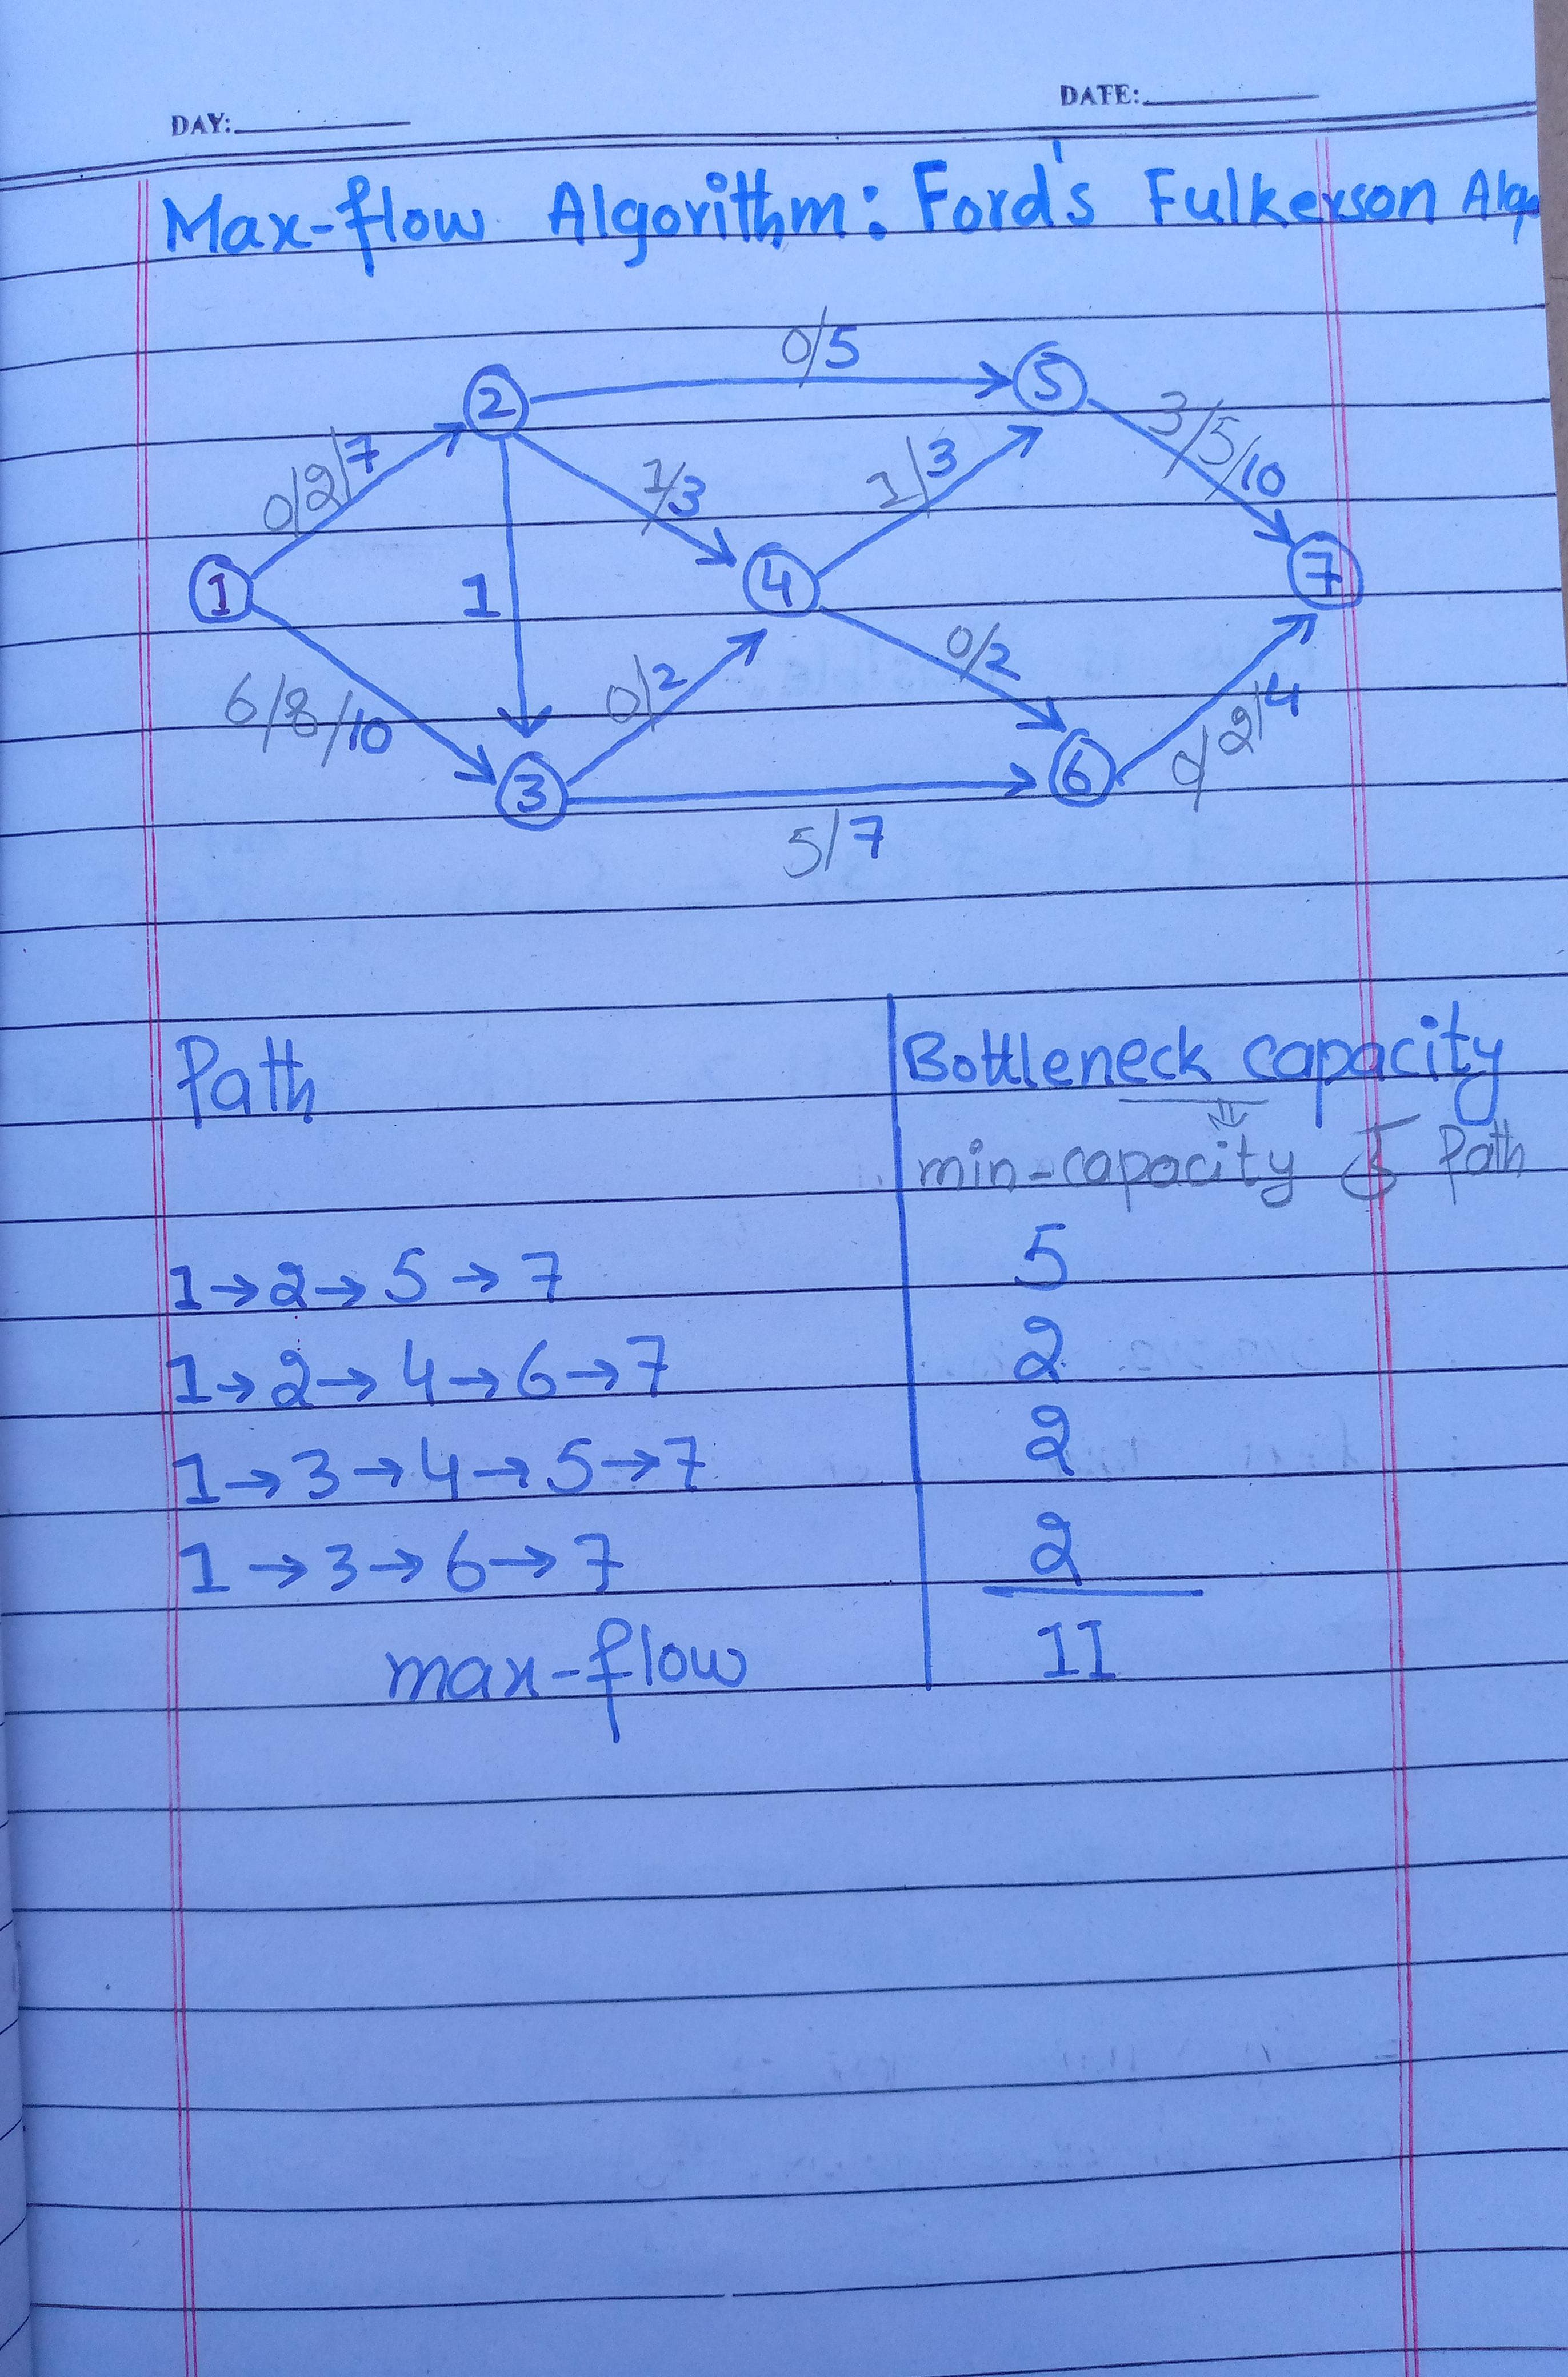 DAY:
DATE:
Max-flow Algorithm: Ford's Fulkerson Algo
0/5
2
5
0/2/7
1/3
1/3
3/5/10
1
1
4
7
6/8/10
0/2
0/2
0/2/4
3
6
5/7
Path
Bottleneck capacity
min-capacity of Path
1→2→5→7
5
1→2→4→6→7
2
1→3→4→5→7
2
1→3→6→7
2
max-flow
11